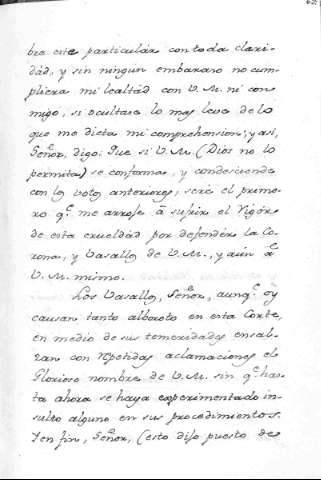 bre este particular con toda clari-
dad, y sin ningun embarazo no cum-
pliera mi lealtad con V. M. ni con-
migo, si ocultase lo mas leve de lo
que me dicta mi comprehension; y asi,
Señor, digo: Que si V. M. (Dios no lo
permita) se conforma, y condesciende
con los votos anteriores, seré el prime-
ro q.e me arroje â sufrir el rigôr
de esta crueldad por defender la Co-
rona, y Vasallos de V. M., y aun â
V. M. mismo.
Los Vasallos, Señor, aunq.e oy
causan tanto alboroto en esta Corte,
en medio de sus temeridades ensal-
zan con repetidas aclamaciones el
Glorioso nombre de V. M. sin q.e has-
ta ahora se haya experimentado in-
sulto alguno en sus procedimientos.
Y en fin, Señor, (esto dijo puesto de